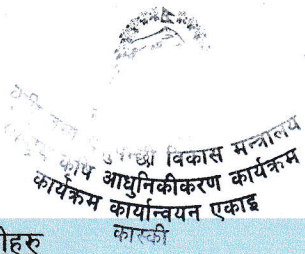 विकास मन्त्रालय
कृषि आधुनिकीकरण कार्यक्रम
कार्यक्रम कार्यान्वयन एकाइ
कास्की